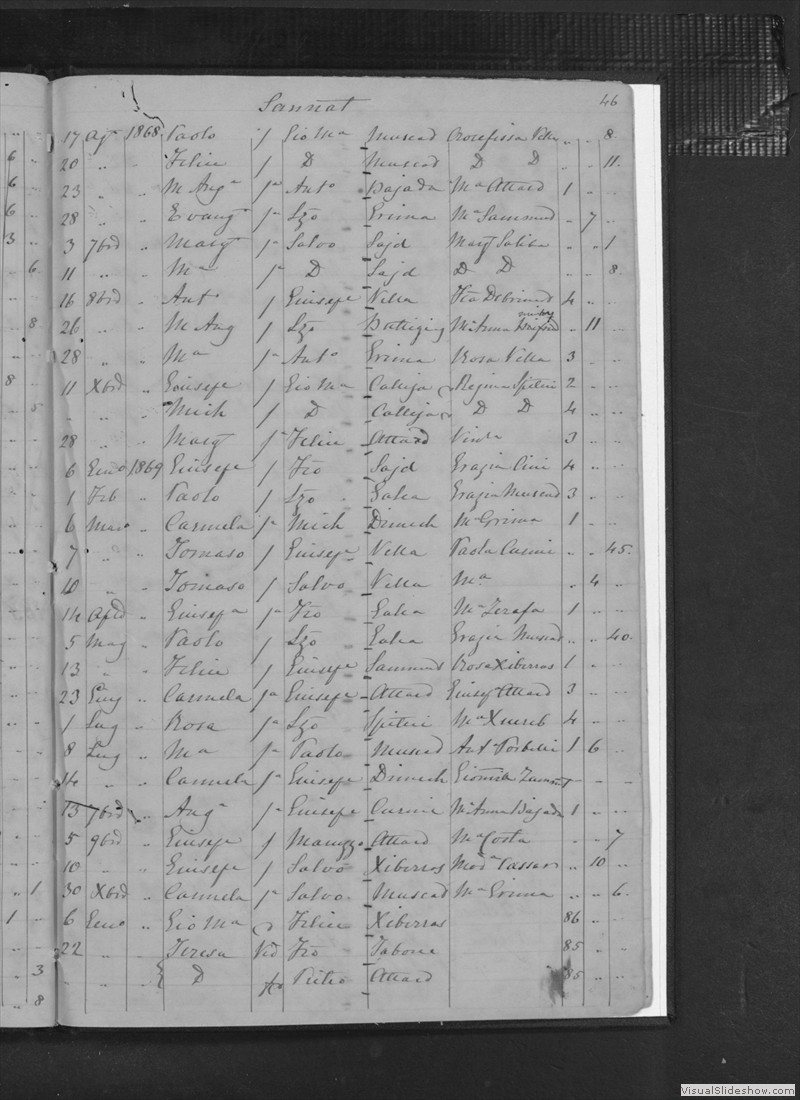 Sannat 46
17 Ag. 1868 Paolo f Gio Ma Muscad Crocefissa Vella .. .. 8
20 .. .. Felice f D Muscad D D .. .. 11
23 .. .. M Anga fa Anto Bajada Ma Attard 1 .. ..
28 .. .. Evang fa Lzo Grima Ma Sammud .. 7 ..
3 7brd .. Marg fa Salvo Sajd Marg Saliba .. .. 1
11 .. .. Ma fa D Sajd D D .. .. 8
16 8brd .. Anto f Giusepe Vella 4 .. ..
26 .. .. M Ang f Lzo Buttigieg .. 11 ..
28 .. .. Ma fa Anto Grima Rosa Vella 3 .. ..
11 Xbrd .. Giusepe f Gio Ma Calleja Regina Spiteri 2 .. ..
.. .. .. Mich f D Calleja D D 4 .. ..
28 .. .. Marg fa Felice Attard 3 .. ..
6 Eno 1869 Giusepe f Fco Sajd Grazia Cini 4 .. ..
1 Feb .. Paolo f Lzo Galea Grazia Muscad 3 .. ..
6 Mao .. Carmela fa Mich Dimech Ma Grima 1 .. ..
7 .. .. Tomaso f Giusepe Vella Paola Curmi .. .. 45
10 .. .. Tomaso f Salvo Vella Ma .. 4 ..
14 Apld .. Giusepa fa Fco Galea Ma Zerafa 1 .. ..
5 Mag .. Paolo f Lzo Galea Grazia Muscad .. .. 40
13 .. .. Felice f Giusepe Sammud Rosa Xiberras 1 .. ..
23 Giug .. Carmela fa Giusepe Attard Giusepa Attard 3 .. ..
1 Lug .. Rosa fa Lzo Spiteri Ma Xuereb 4 .. ..
8 Lug .. Ma fa Paolo Muscad Anta Portelli 1 6 ..
14 .. .. Carmela fa Giusepe Dimech .. ..
13 7brd .. Anga fa Giusepe Curmi Ma Anna Bajada 1 .. ..
5 9brd .. Giusepe f Maruzzo Attard Ma Costa .. .. 7
10 .. .. Giusepe f Salvo Xiberras Mada Cassar .. 10 ..
30 Xbrd .. Carmela fa Salvo Muscad Ma Grima .. .. 6
6 Eno .. Gio Ma Felice Xiberras 86 .. ..
22 .. .. Teresa Vid Fco Tabone 85 .. ..
.. .. .. D Pietro Attard 85 .. ..
VisualSlideshow.com